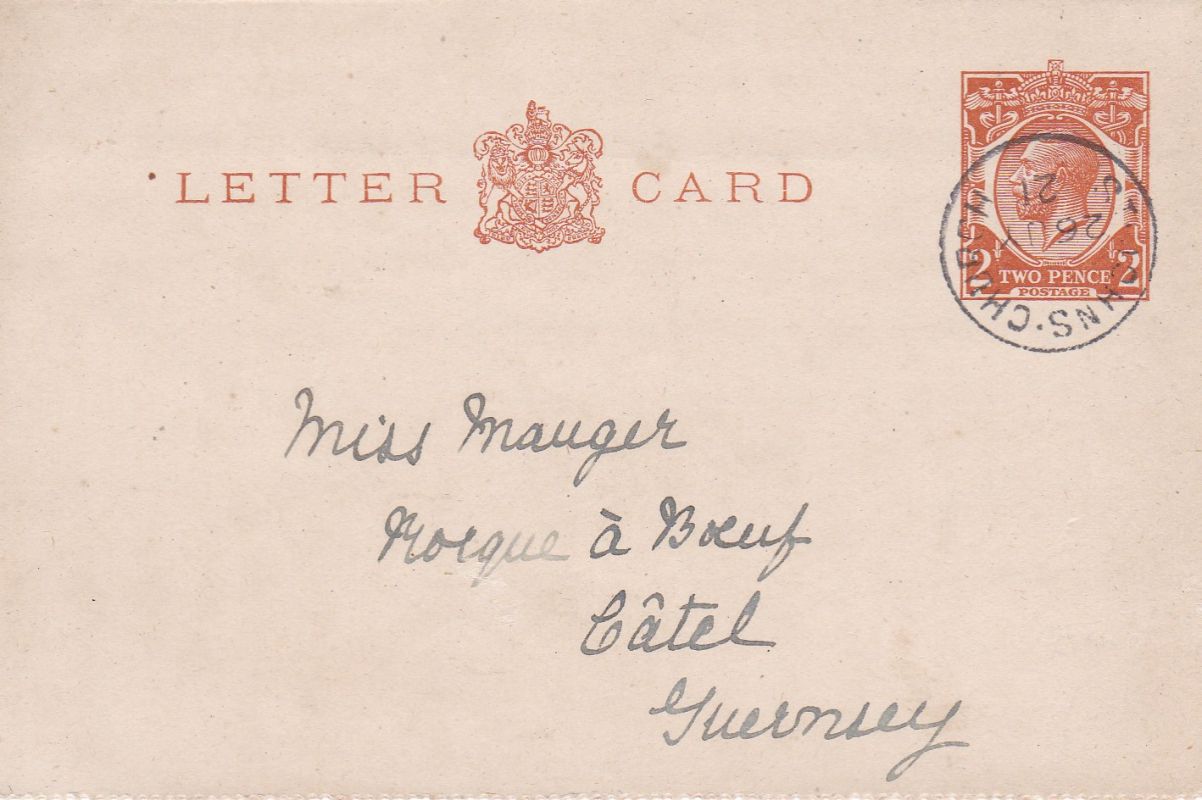 LETTER CARD
2 TWO PENCE 2
POSTAGE
ST. JOHNS. CHURCH
26 JY
21
Miss Mauger
Rocque à Bœuf
Câtel
Guernsey